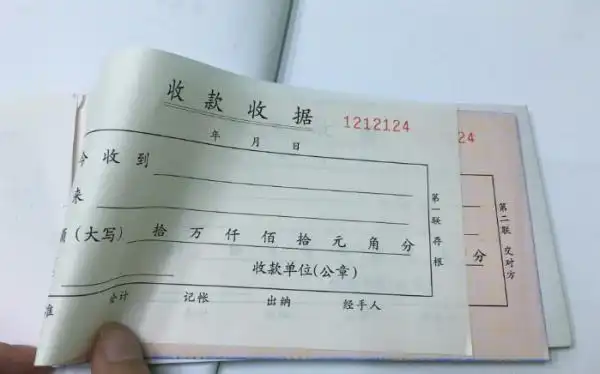 收款收据 1212124
年 月 日
今收到
来
(大写) 拾 万 仟 佰 拾 元 角 分
收款单位(公章)
会计 记帐 出纳 经手人
第一联 存根
24
分
第二联 交对方